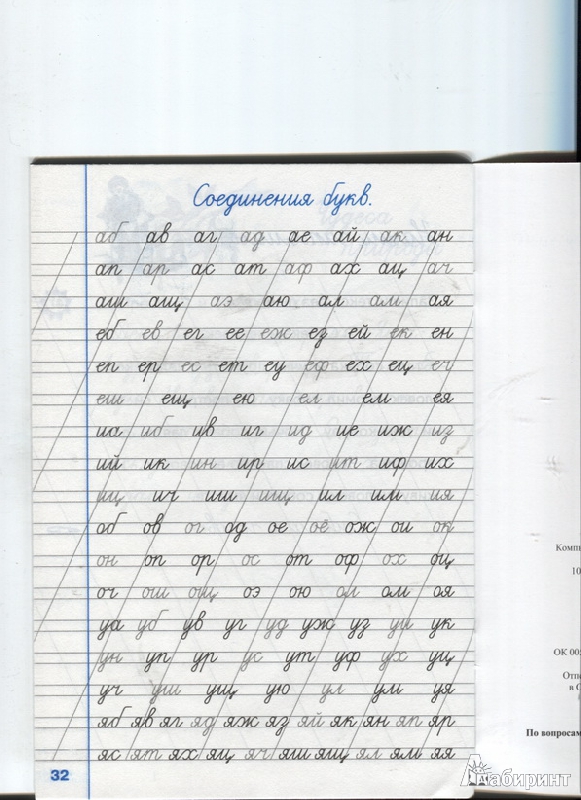 Соединения букв.
аб ав аг ад ае ай ак ан
ап ар ас ат аф ах ац ач
аш ащ аэ аю ал ам ая
еб ев ег ее еж ез ей ек ен
еп ер ес ет еу еф ех ец еч
еш ещ ею ел ем ея
иа иб ив иг ид ие иж из
ий ик ин ир ис ит иф их
иц ич иш ищ ил им ия
об ов ог од ое оё ож ои ок
он оп ор ос от оф ох оц
оч ош ощ оэ ою ол ом оя
уа уб ув уг уд уж уз уи ук
ун уп ур ус ут уф ух уц
уч уш ущ ую ул ум уя
яб яв яг яд яж яз яй як ян яп яр
яс ят ях яц яч яш ящ ял ям яя
32
Компь
10
ОК 00
Отпе
в О
По вопросам
Лабиринт